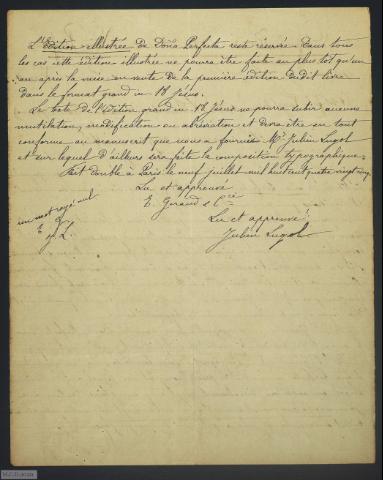 L'édition illustrée de Doña Perfecta reste réservée. Dans tous
les cas cette édition illustrée ne pourra être faite au plus tôt qu'un
an après la mise en vente de la première édition dudit livre
dans le format grand in 18 jésus.
Le texte de l'édition grand in 18 jésus ne pourra subir aucune
mutilation, modification ou abréviation et devra être en tout
conforme au manuscrit que nous a fourni Mr Julien Lugol
et sur lequel d'ailleurs sera faite la composition typographique.
Fait double à Paris le neuf juillet mil huit cent quatre vingt cinq
Lu et approuvé
E. Giraud & Cie
un mot rayé nul
E G
J. L.
Lu et approuvé
Julien Lugol